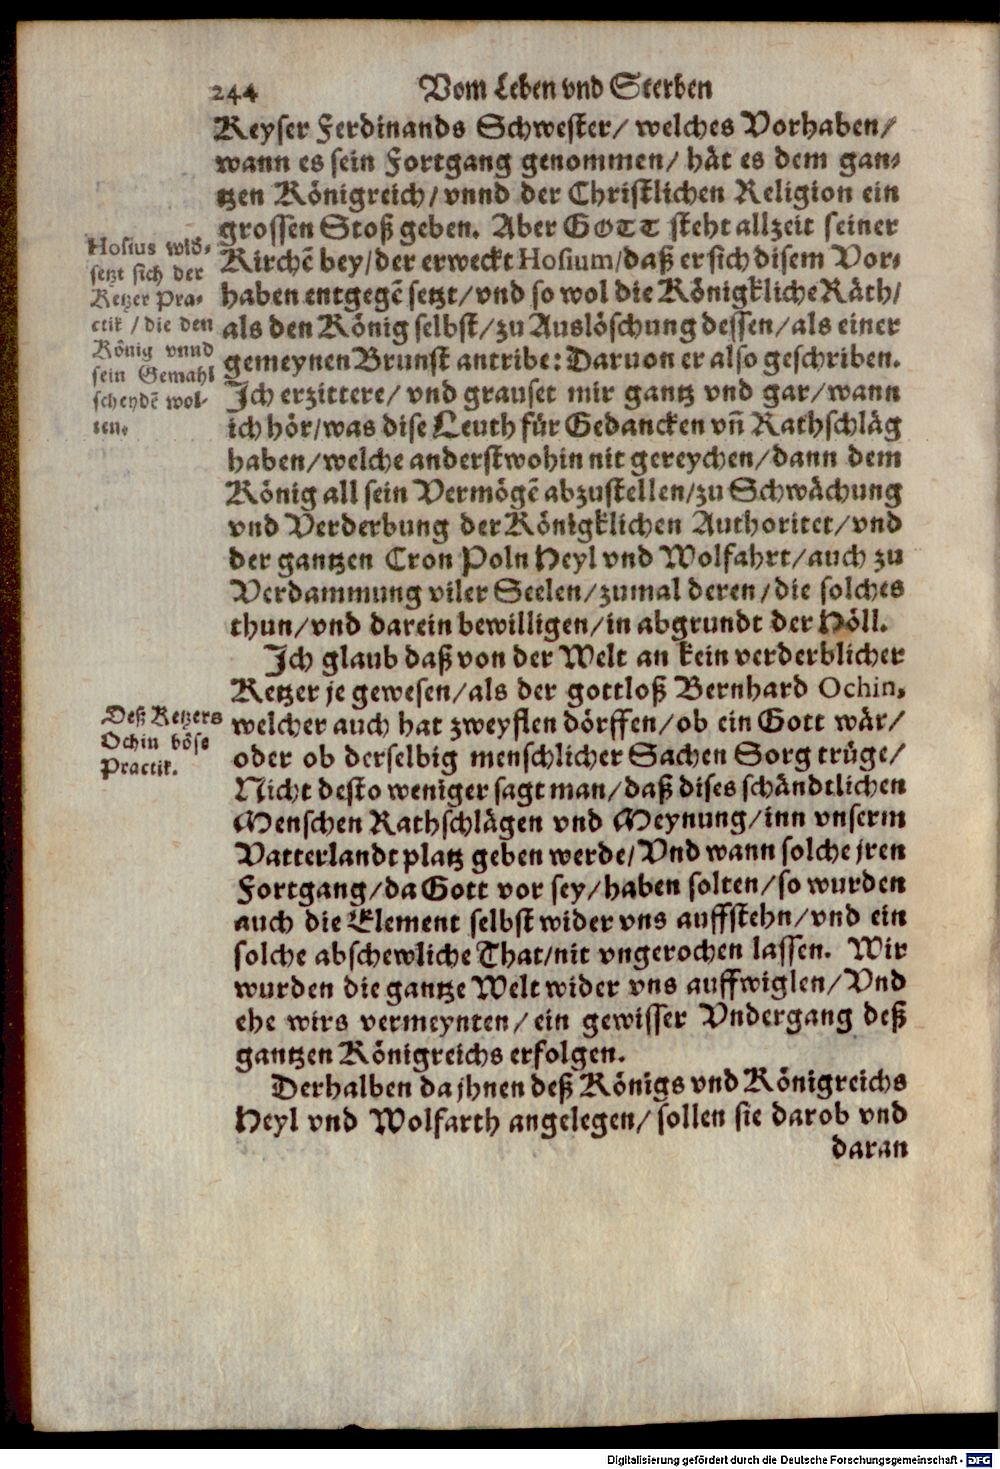 244 Vom Leben vnd Sterben
Keyser Ferdinands Schwester/ welches Vorhaben/
wann es sein Fortgang genommen/ hät es dem gan-
tzen Königreich/ vnnd der Christlichen Religion ein
grossen Stoß geben. Aber GOTT steht allzeit seiner
Kirchẽ bey/ der erweckt Hosium/ daß er sich disem Vor-
haben entgegẽ setzt/ vnd so wol die Königkliche Räth/
als den König selbst/ zu Auslöschung dessen/ als einer
gemeynen Brunst antribe: Daruon er also geschriben.
Ich erzittere/ vnd grauset mir gantz vnd gar/ wann
ich hör/ was dise Leuth für Gedancken vñ Rathschläg
haben/ welche anderstwohin nit gereychen/ dann dem
König all sein Vermögẽ abzustellen/ zu Schwächung
vnd Verderbung der Königklichen Authoritet/ vnd
der gantzen Cron Poln Heyl vnd Wolfahrt/ auch zu
Verdammung viler Seelen/ zumal deren/ die solches
thun/ vnd darein bewilligen/ in abgrundt der Höll.
Ich glaub daß von der Welt an kein verderblicher
Ketzer je gewesen/ als der gottloß Bernhard Ochin,
welcher auch hat zweyflen dörffen/ ob ein Gott wär/
oder ob derselbig menschlicher Sachen Sorg trüge/
Nicht desto weniger sagt man/ daß dises schändtlichen
Menschen Rathschlägen vnd Meynung/ inn vnserm
Vatterlandt platz geben werde/ Vnd wann solche jren
Fortgang/ da Gott vor sey/ haben solten/ so wurden
auch die Element selbst wider vns auffstehn/ vnd ein
solche abschewliche That/ nit vngerochen lassen. Wir
wurden die gantze Welt wider vns auffwiglen/ Vnd
ehe wirs vermeynten/ ein gewisser Vndergang deß
gantzen Königreichs erfolgen.
Derhalben da jhnen deß Königs vnd Königreichs
Heyl vnd Wolfarth angelegen/ sollen sie darob vnd
daran
Hosius wid-
setzt sich der
Ketzer Pra-
ctik / die den
König vnnd
sein Gemahl
scheydẽ wol-
ten.
Deß Ketzers
Ochin böse
Practik.
Digitalisierung gefördert durch die Deutsche Forschungsgemeinschaft - DFG